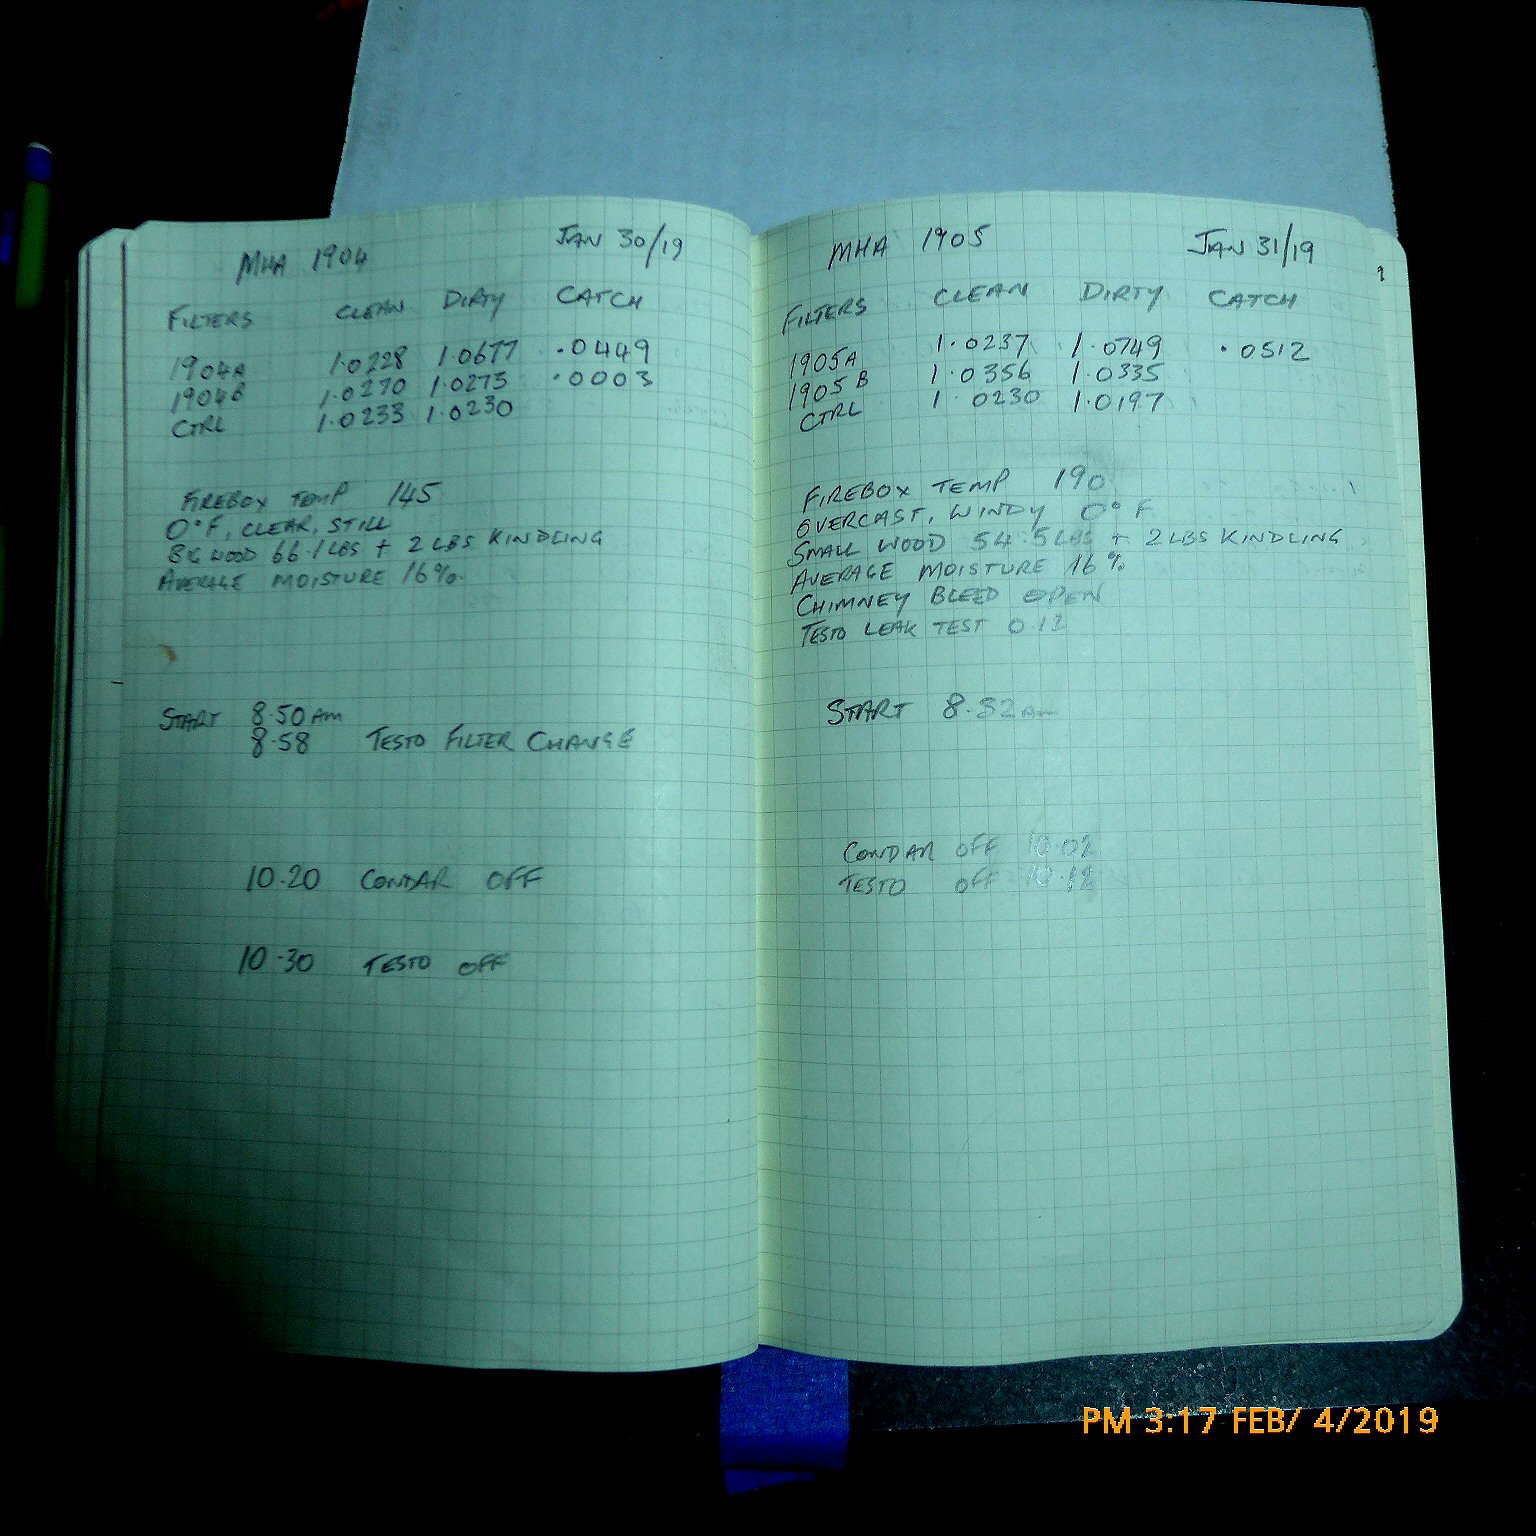 MHA 1904 JAN 30/19
FILTERS CLEAN DIRTY CATCH
1904A 1.0228 1.0677 .0449
1904B 1.0270 1.0273 .0003
CTRL 1.0233 1.0230
FIREBOX TEMP 145
0°F, CLEAR, STILL
BIG WOOD 66.1 LBS + 2 LBS KINDLING
AVERAGE MOISTURE 16%.
START 8.50 AM
8.58 TESTO FILTER CHANGE
10.20 CONDAR OFF
10.30 TESTO OFF
MHA 1905 JAN 31/19
9
FILTERS CLEAN DIRTY CATCH
1905A 1.0237 1.0749 .0512
1905B 1.0356 1.0335
CTRL 1.0230 1.0197
FIREBOX TEMP 190
OVERCAST, WINDY 0°F
SMALL WOOD 54.5 LBS + 2 LBS KINDLING
AVERAGE MOISTURE 16%
CHIMNEY BLEED OPEN
TESTO LEAK TEST 0.12
START 8.32 AM
CONDAR OFF 10.02
TESTO OFF 10.12
PM 3:17 FEB/ 4/2019